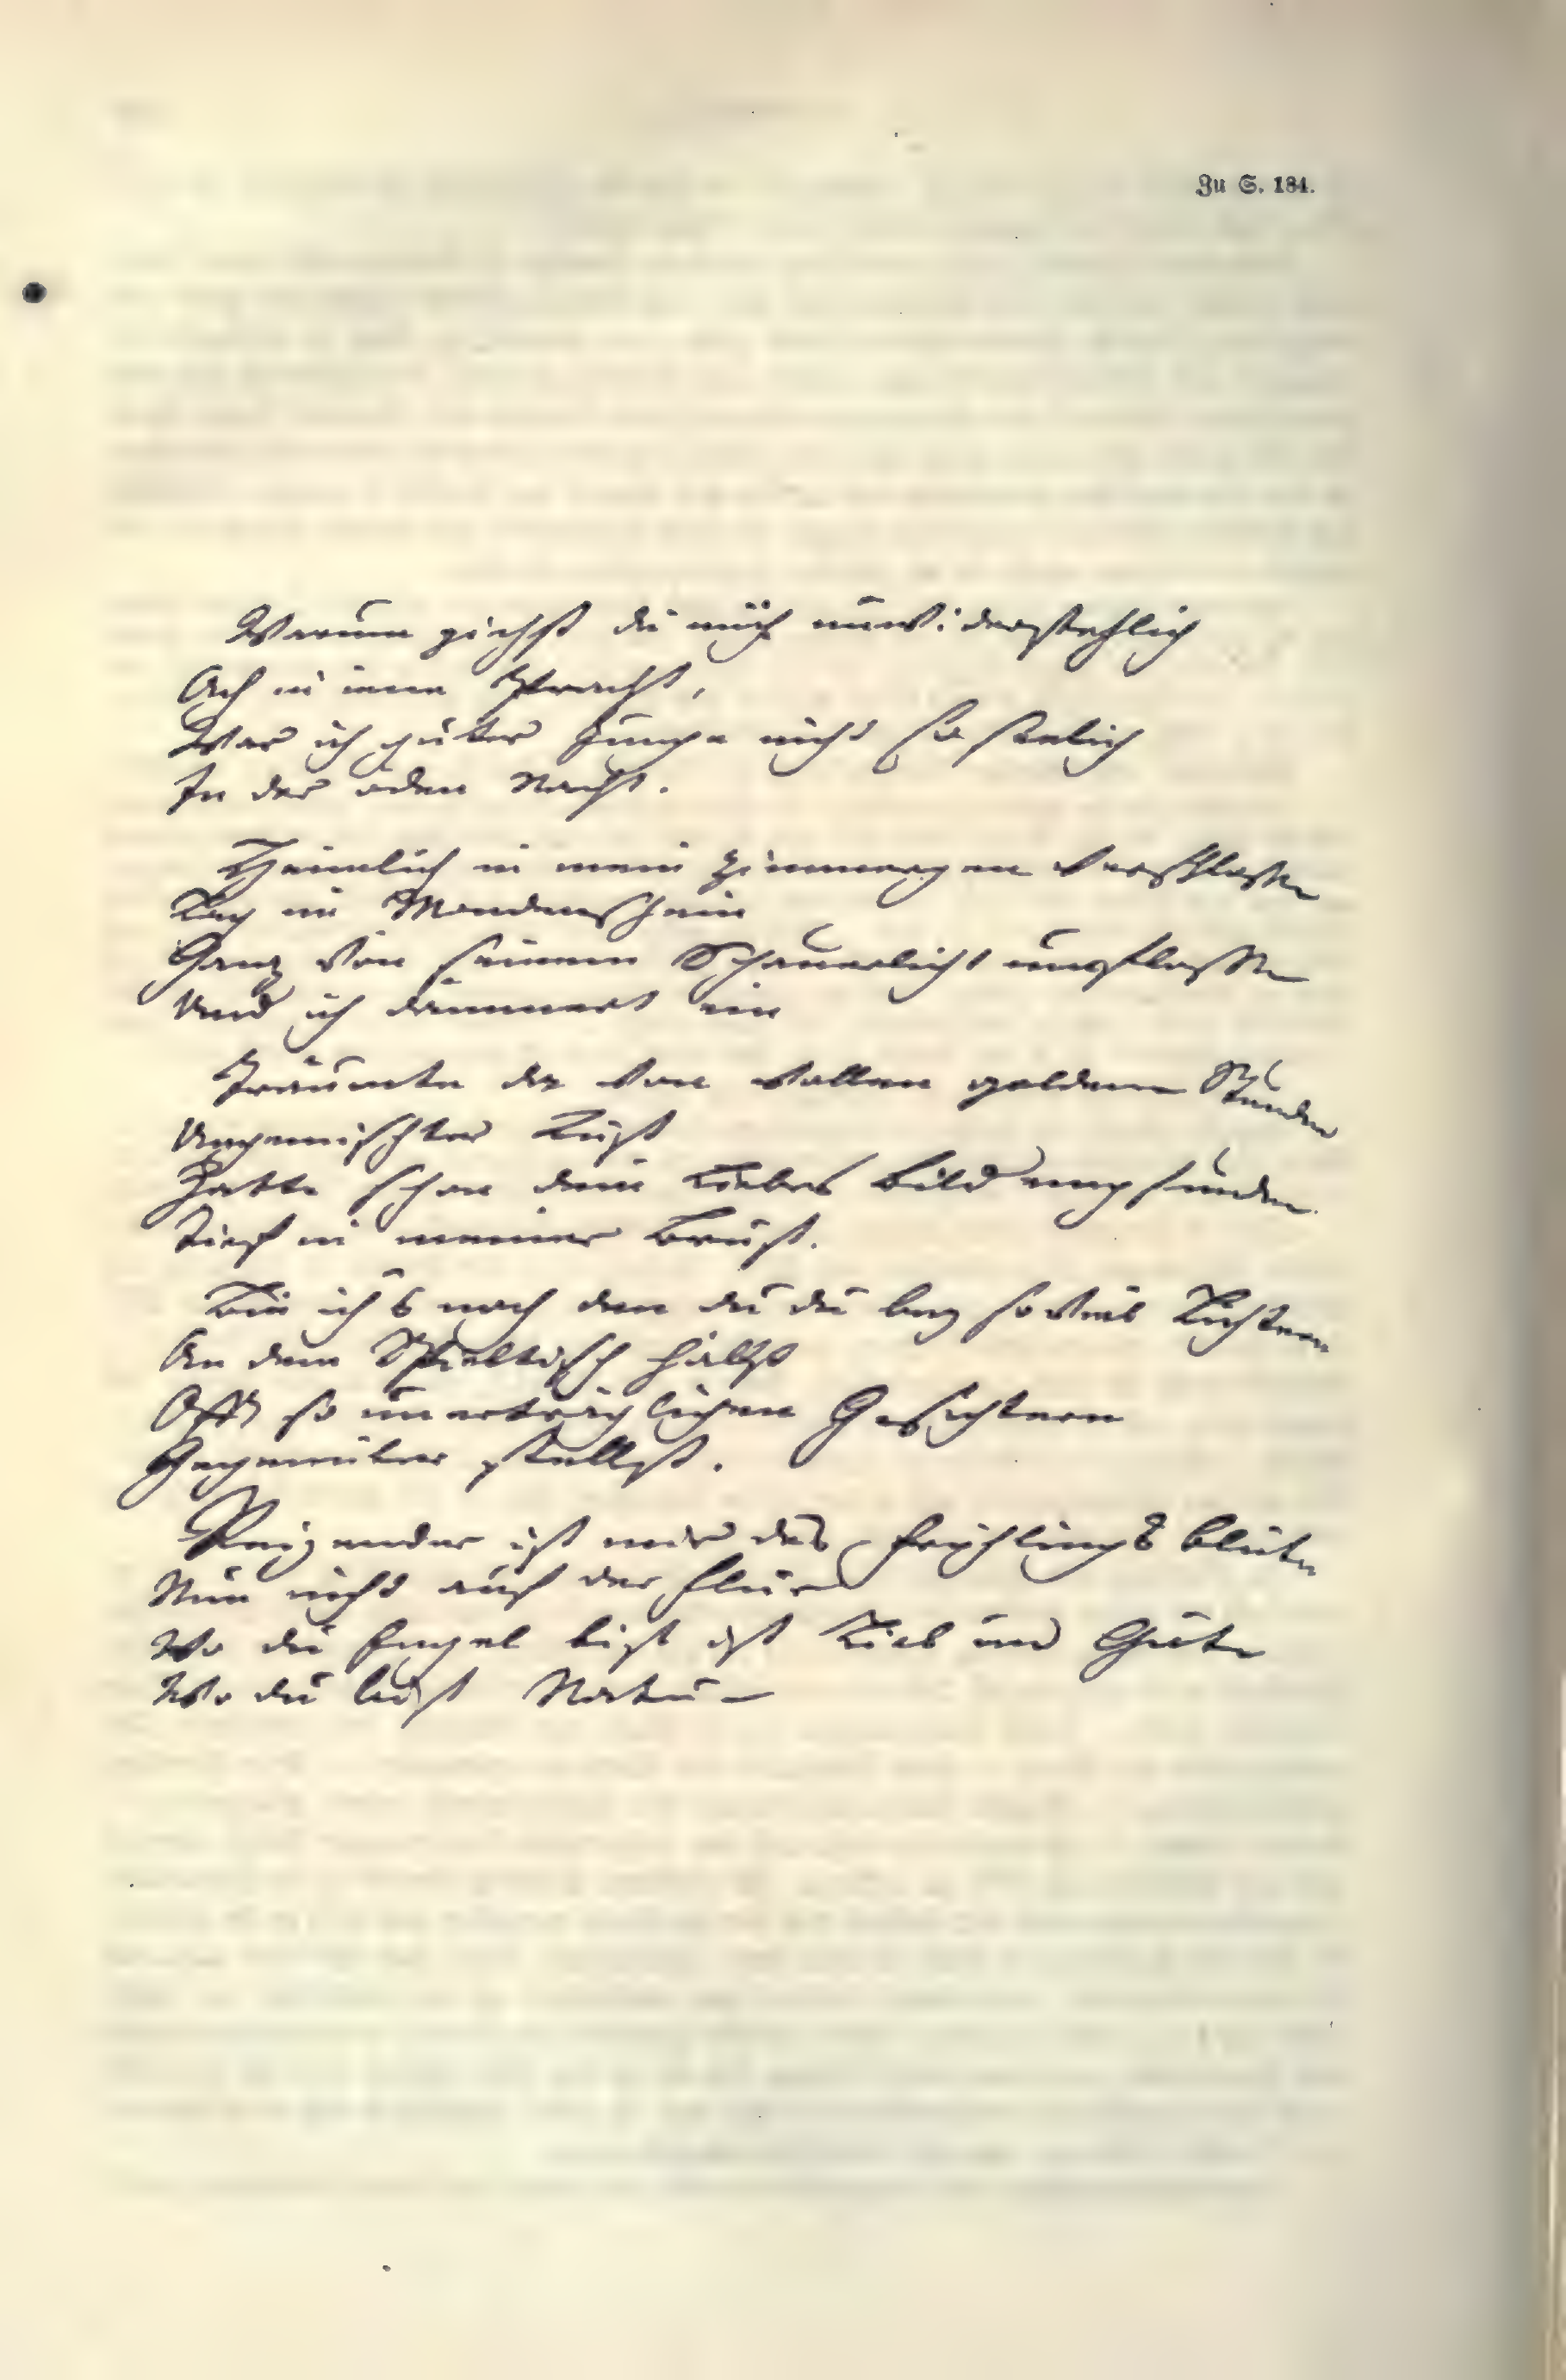 Zu S. 184.
Warum ziehst du mich unwiderstehlich
Ach in iene Pracht,
War ich guter Junge nicht so seelich
In der öden Nacht.
Heimlich in mein Zimmergen verschlossen
Lag im Mondenschein
Ganz von seinem Schauerlicht umflossen
Und ich dämmert ein
Träumte da von vollen goldenen Stunden
Ungemischter Lust
Hatte schon dein liebes Bild empfunden
Tief in meiner Brust.
Bin ich's noch den du bey so viel Lichtern
An dem Spieltisch hältst
Offt so unerträglichen Gesichtern
Gegenüber stellst.
Reizender ist mir des Frühlings Blüte
Nun nicht auf der Flur
Wo du Engel bist ist Lieb und Güte
Wo du bist Natur